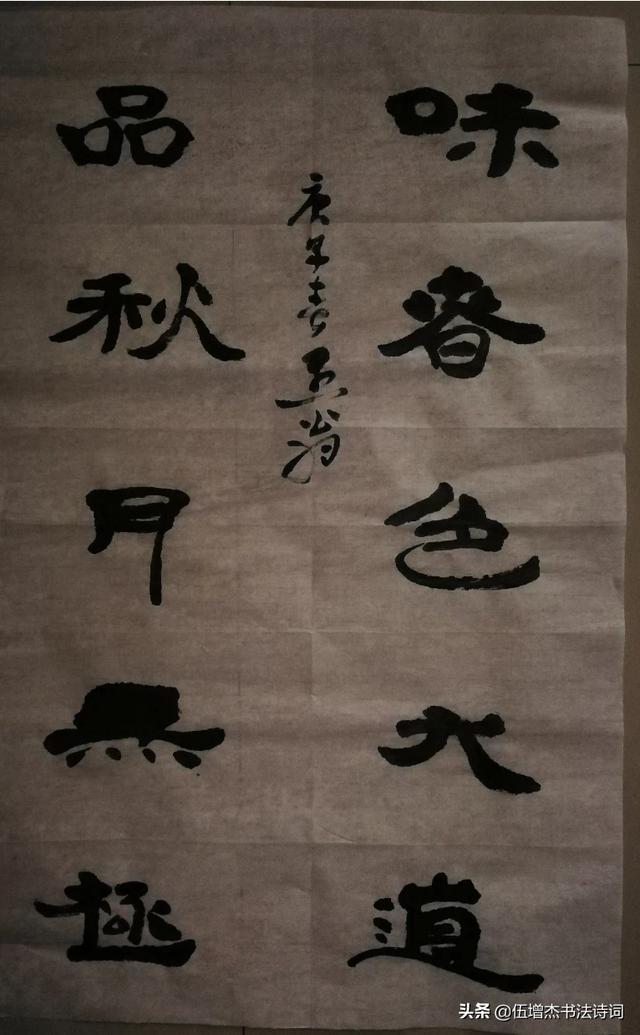 味春色大道
庚子春 五翁
品秋月無極
头条 @伍增杰书法诗词